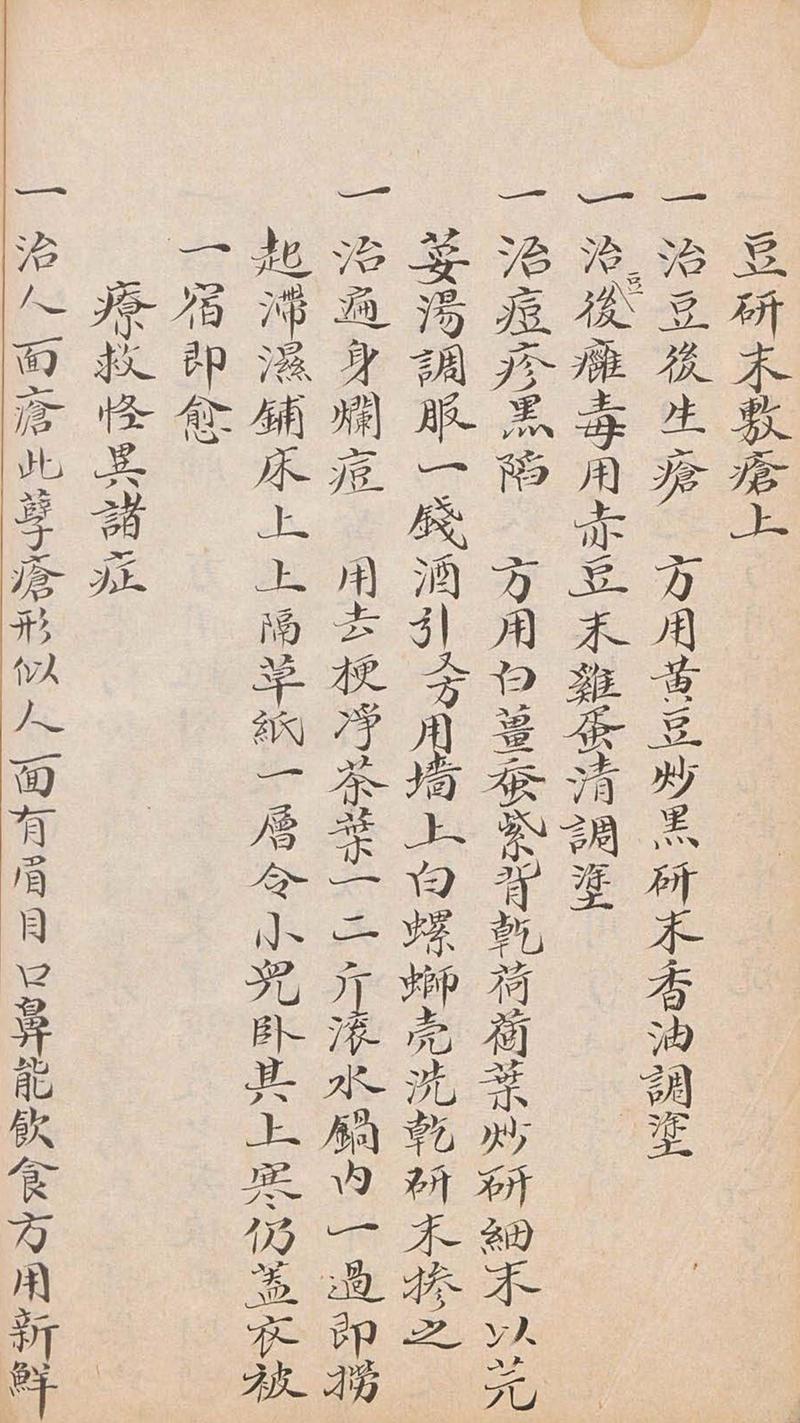 豆研末敷瘡上
一治豆後生瘡　方用黄豆炒黒研末香油調塗
一治豆後癰毒用赤豆末雞蛋清調塗
一治痘疹黒陷　方用白薑蚕紫背乾荷葉炒研細末以芫
荽湯調服一錢酒引又方用墻上白螺螄壳洗乾研末掺之
一治遍身爛痘　用去梗凈茶葉一二斤滚水鍋内一過即撈
起滯濕鋪床上上隔草紙一層令小兒卧其上寒仍盖衣被
一宿即愈
療救怪異諸症
一治人面瘡此孽瘡形似人面有眉目口鼻能飲食方用新鮮